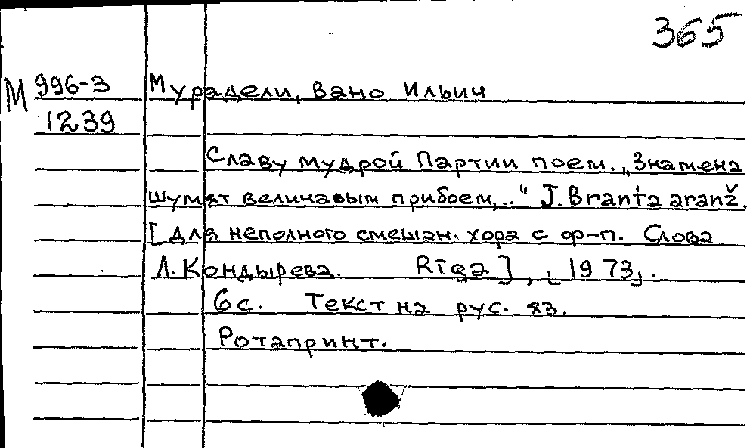 365
М 996-3 Мурадели, Вано Ильич
1239
Славу мудрой Партии поем. „Знамена
шумят величавым прибоем,.." J. Branta aranž.
[для неполного смешан. хора с ф-п. Слова
Л. Кондырева. Rīga], [1973].
6 с. Текст на рус. яз.
Ротапринт.